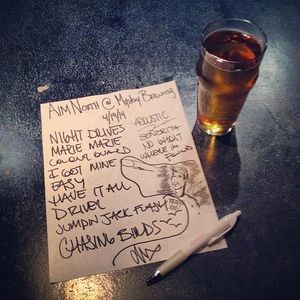 AIM NORTH @ Brewing
4/19/19
NIGHT DRIVES
MARIE MARIE
COLOUR GUARD
I GOT MINE
EASY
HAVE IT ALL
DRIVER
JUMPIN JACK FLASH
CHASING BIRDS
ACOUSTIC
SEÑORITA
NO LIGHT
WHERE I'M